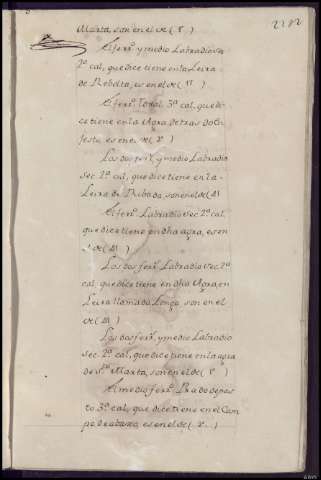 2202
Marta, son en el de ( )
El ferr.º y medio Labradio sec.
2ª cal, que dice tiene en la Leira
de Rebolta, es en el de ( )
El ferr.º Toxal 3ª cal, que di-
ce tiene en la Agra detras do Ca
festo, es en el de ( )
Los dos ferr.s y medio Labradio
sec. 2ª cal, que dice tiene en la
Leira de Ribada, son en el de ( )
El ferr.º Labradio sec. 2ª cal,
que dice tiene en dha agra, es en
el de ( )
Los dos ferr.s Labradio sec. 2ª
cal, que dice tiene en dha Agra, en
Leira llamada Longa, son en el
de ( )
Los dos ferr.s y medio Labradio
sec. 2ª cal, que dice tiene en la agra
de S.ta Marta, son en el de ( )
El medio ferr.º Prado de pas-
to 3ª cal, que dice tiene en el Cam
po de abaxo, es en el de ( )